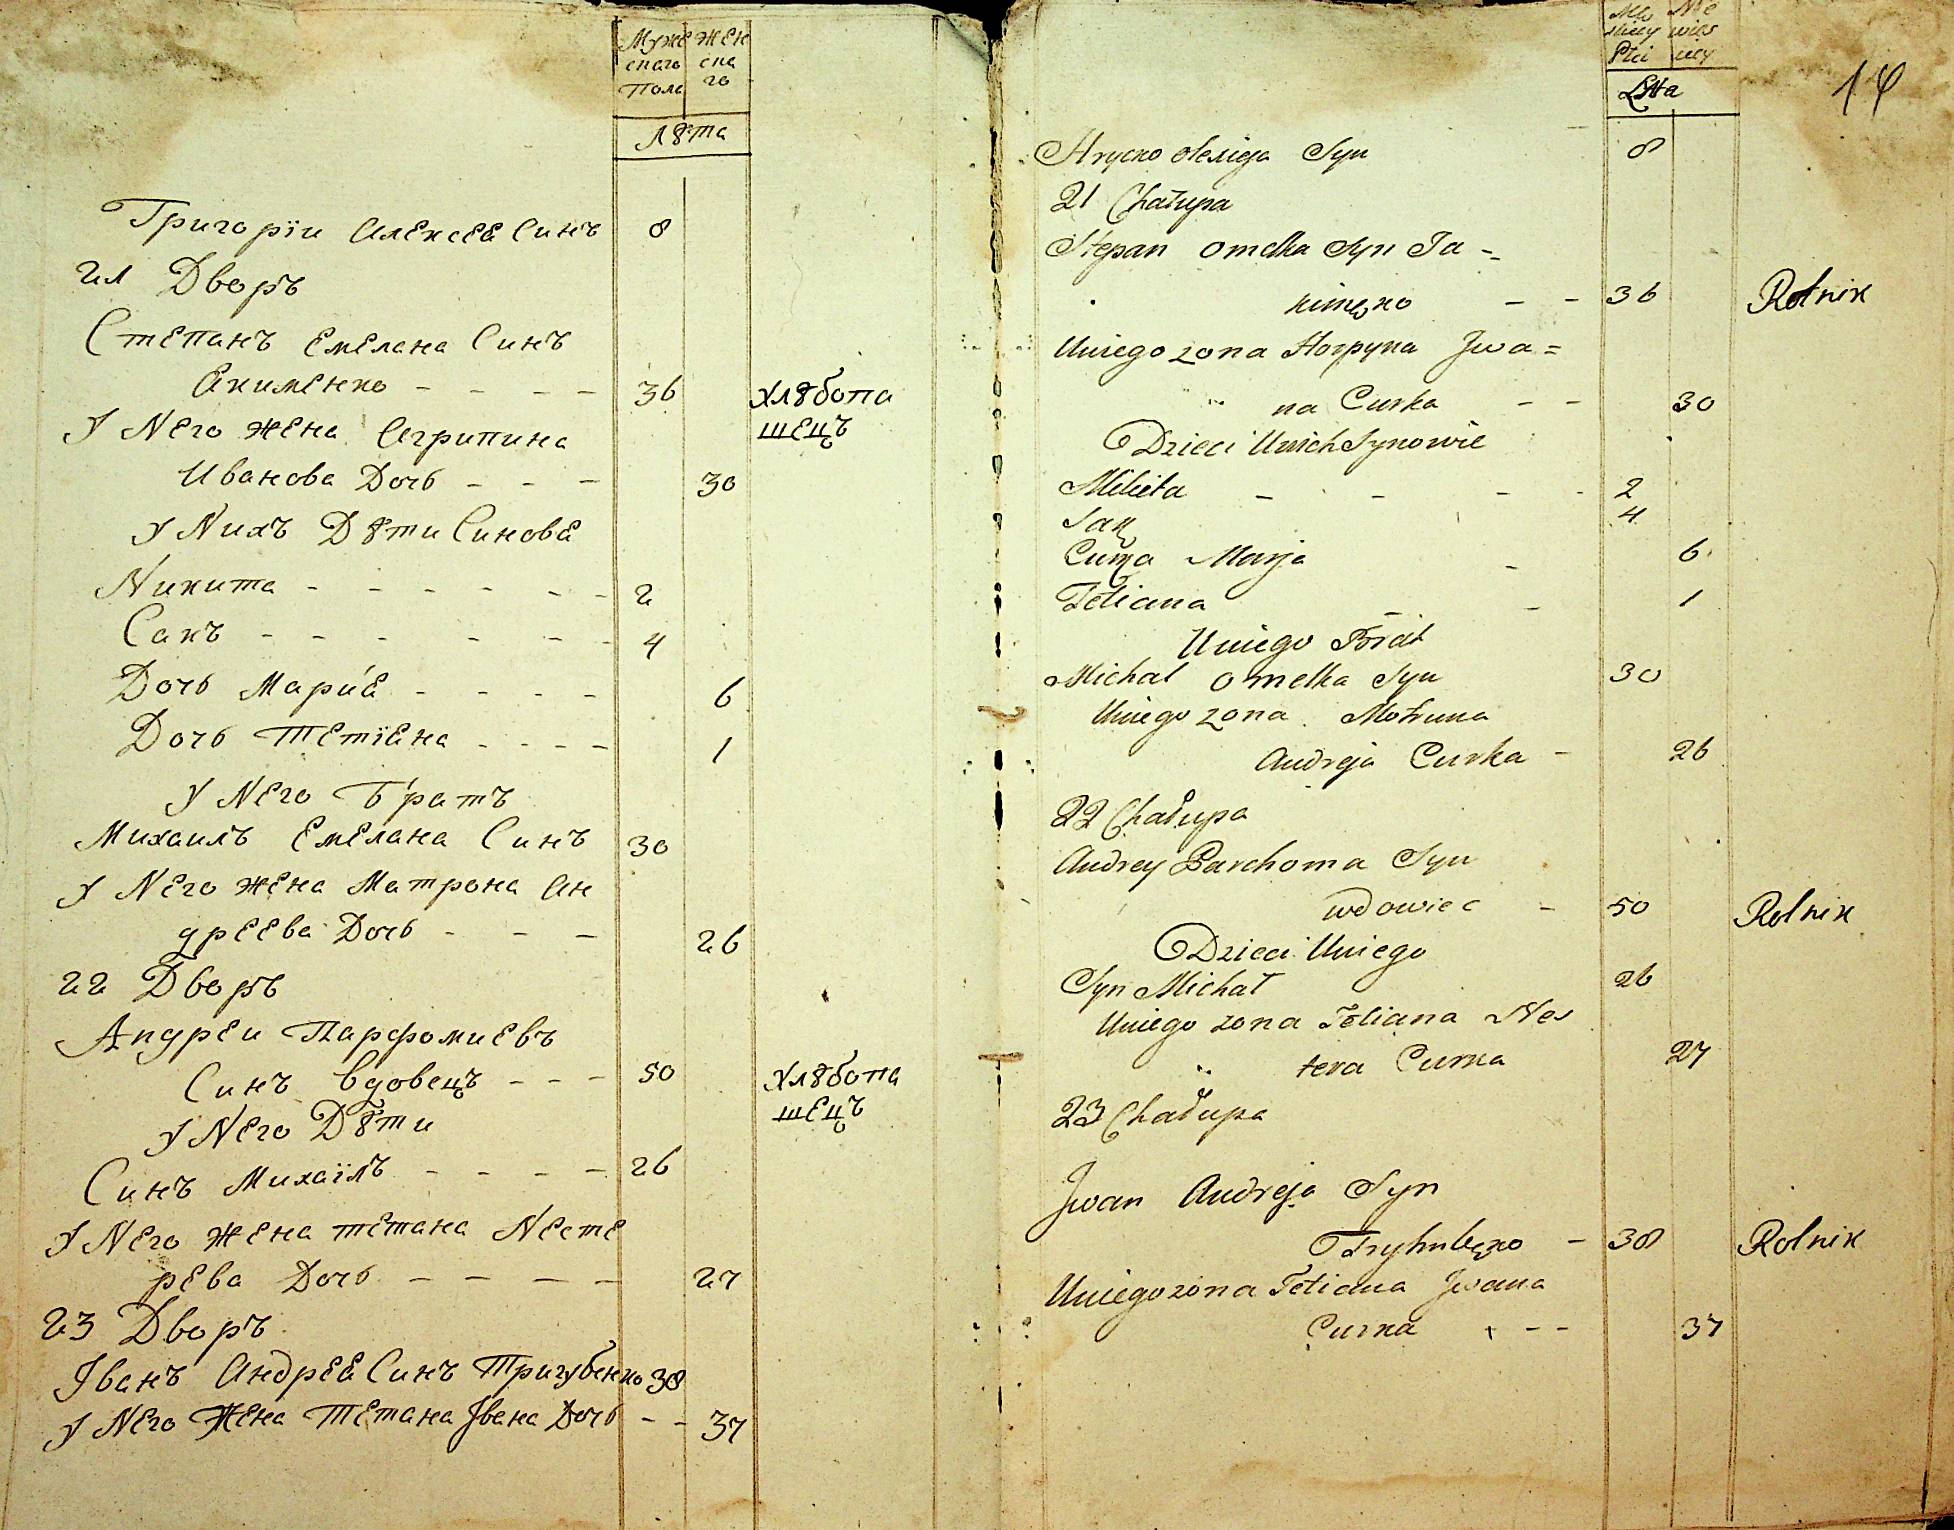 Муже Жен
скаго ска
Пола го
Лѣта
Григорїи Алексея Синъ 8
21 Дворъ
Степанъ Емеляна Синъ
Акименко - - - - 36 Хлѣбопа
У Него жена Агрипина шецъ
Иванова Дочь - - - 30
У Нихъ Дѣти Синове
Никита - - - - - - 2
Сакъ - - - - - - 4
Дочь Марїя - - - - 6
Дочь Тетїяна - - - - 1
У Него Братъ
Михаилъ Емеляна Синъ 30
У Него жена Матрона Ан
дреева Дочь - - - 26
22 Дворъ
Андреи Парфомиевъ
Синъ вдовецъ - - - 50 Хлѣбопа
У Него Дѣти шецъ
Синъ Михаїлъ - - - - 26
У Него жена Тетяна Несте
рева Дочь - - - - 27
23 Дворъ
Іванъ Андрея Синъ Тригубенко 38
У Него Жена Тетяна Івана Дочь - - 37
14
Lata
Hrycko Olexieja Syn 8
21 Chałupa
Stepan Omelka Syn Ja =
kimęko - - 36 Rolnik
Uniego zona Horpyna Jwa =
na Curka - - 30
Dzieci Unich Synowie
Mikita - - - - 2
Sak 4
Curka Marja - 6
Tetiana - - 1
Uniego Bràt
Michał Omelka Syn 30
Uniego zona Motruna
Andreja Curka - 26
22 Chałupa
Andrey Parchoma Syn
wdowiec - 50 Rolnik
Dzieci Uniego
Syn Michał 26
Uniego zona Tetiana Nes
tera Curka 27
23 Chałupa
Jwan Andreja Syn
Tryhubęko - 38 Rolnik
Uniego zona Tetiana Jwana
Curka - - - 37